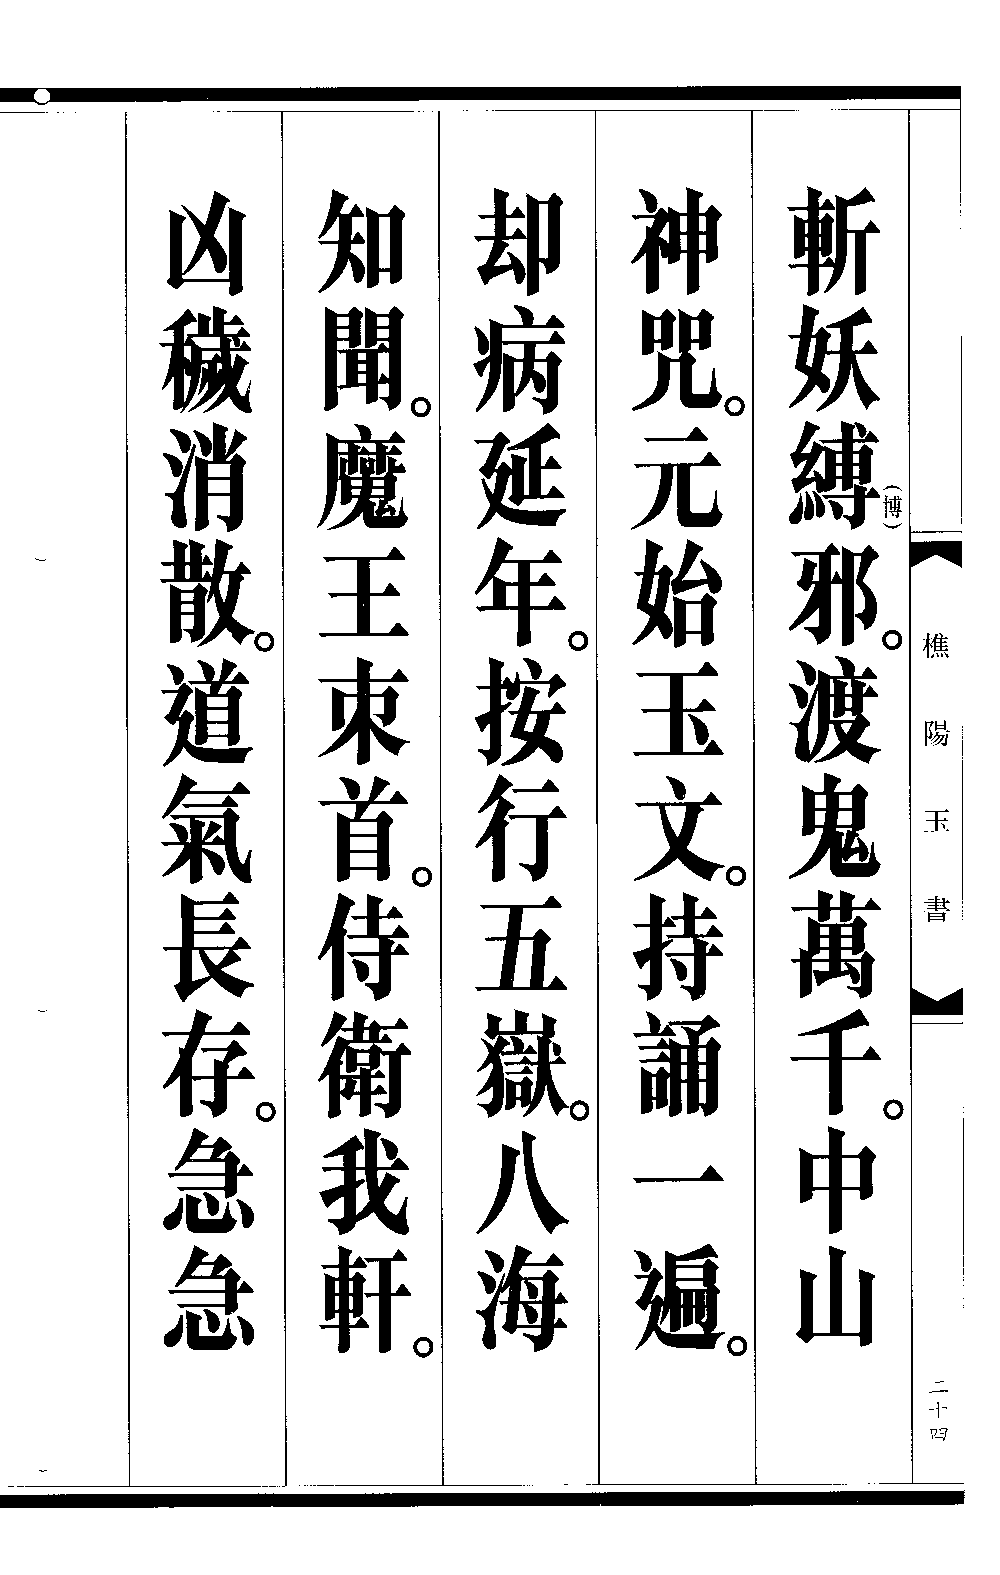 樵陽玉書
二十四
斬妖縛(博)邪。渡鬼萬千。中山
神咒。元始玉文。持誦一遍。
却病延年。按行五嶽。八海
知聞。魔王朿首。侍衛我軒。
凶穢消散。道氣長存。急急